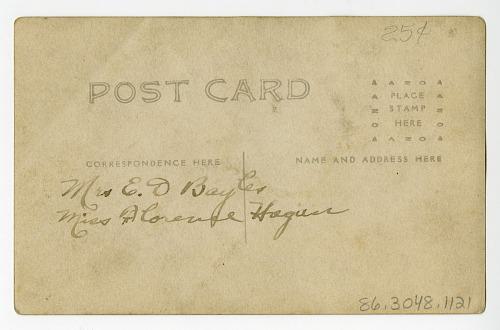 25¢
POST CARD
PLACE
STAMP
HERE
CORRESPONDENCE HERE
NAME AND ADDRESS HERE
Mrs E. D Bayles
Miss Florence Hagen
86.3048.1121